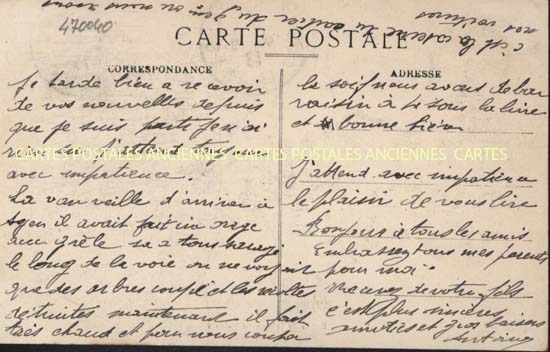 470040
c'est la
nos voitures
CARTE POSTALE
CORRESPONDANCE
je tarde bien a recevoir
de vos nouvelles depuis
que je suis parti je n'ai
avec impatience.
La veille d'arriver à
Agen il avait fait un orage
avec grêle
le long de la voie on ne voyait
que des arbres coupé et les récoltes
détruites maintenant il fait
très chaud et pour nous couper
ADRESSE
la soif nous avons de bon
raisin à 4 sous la livre
et bonne bière
J'attend avec impatience
le plaisir de vous lire
Bonjour à tous les amis
Embrasse tous mes parents
pour moi.
Recevez de votre fils
c'est plus sincères
amitiés et gros baisers
Antoine
CARTES POSTALES ANCIENNES CARTES POSTALES ANCIENNES CARTES